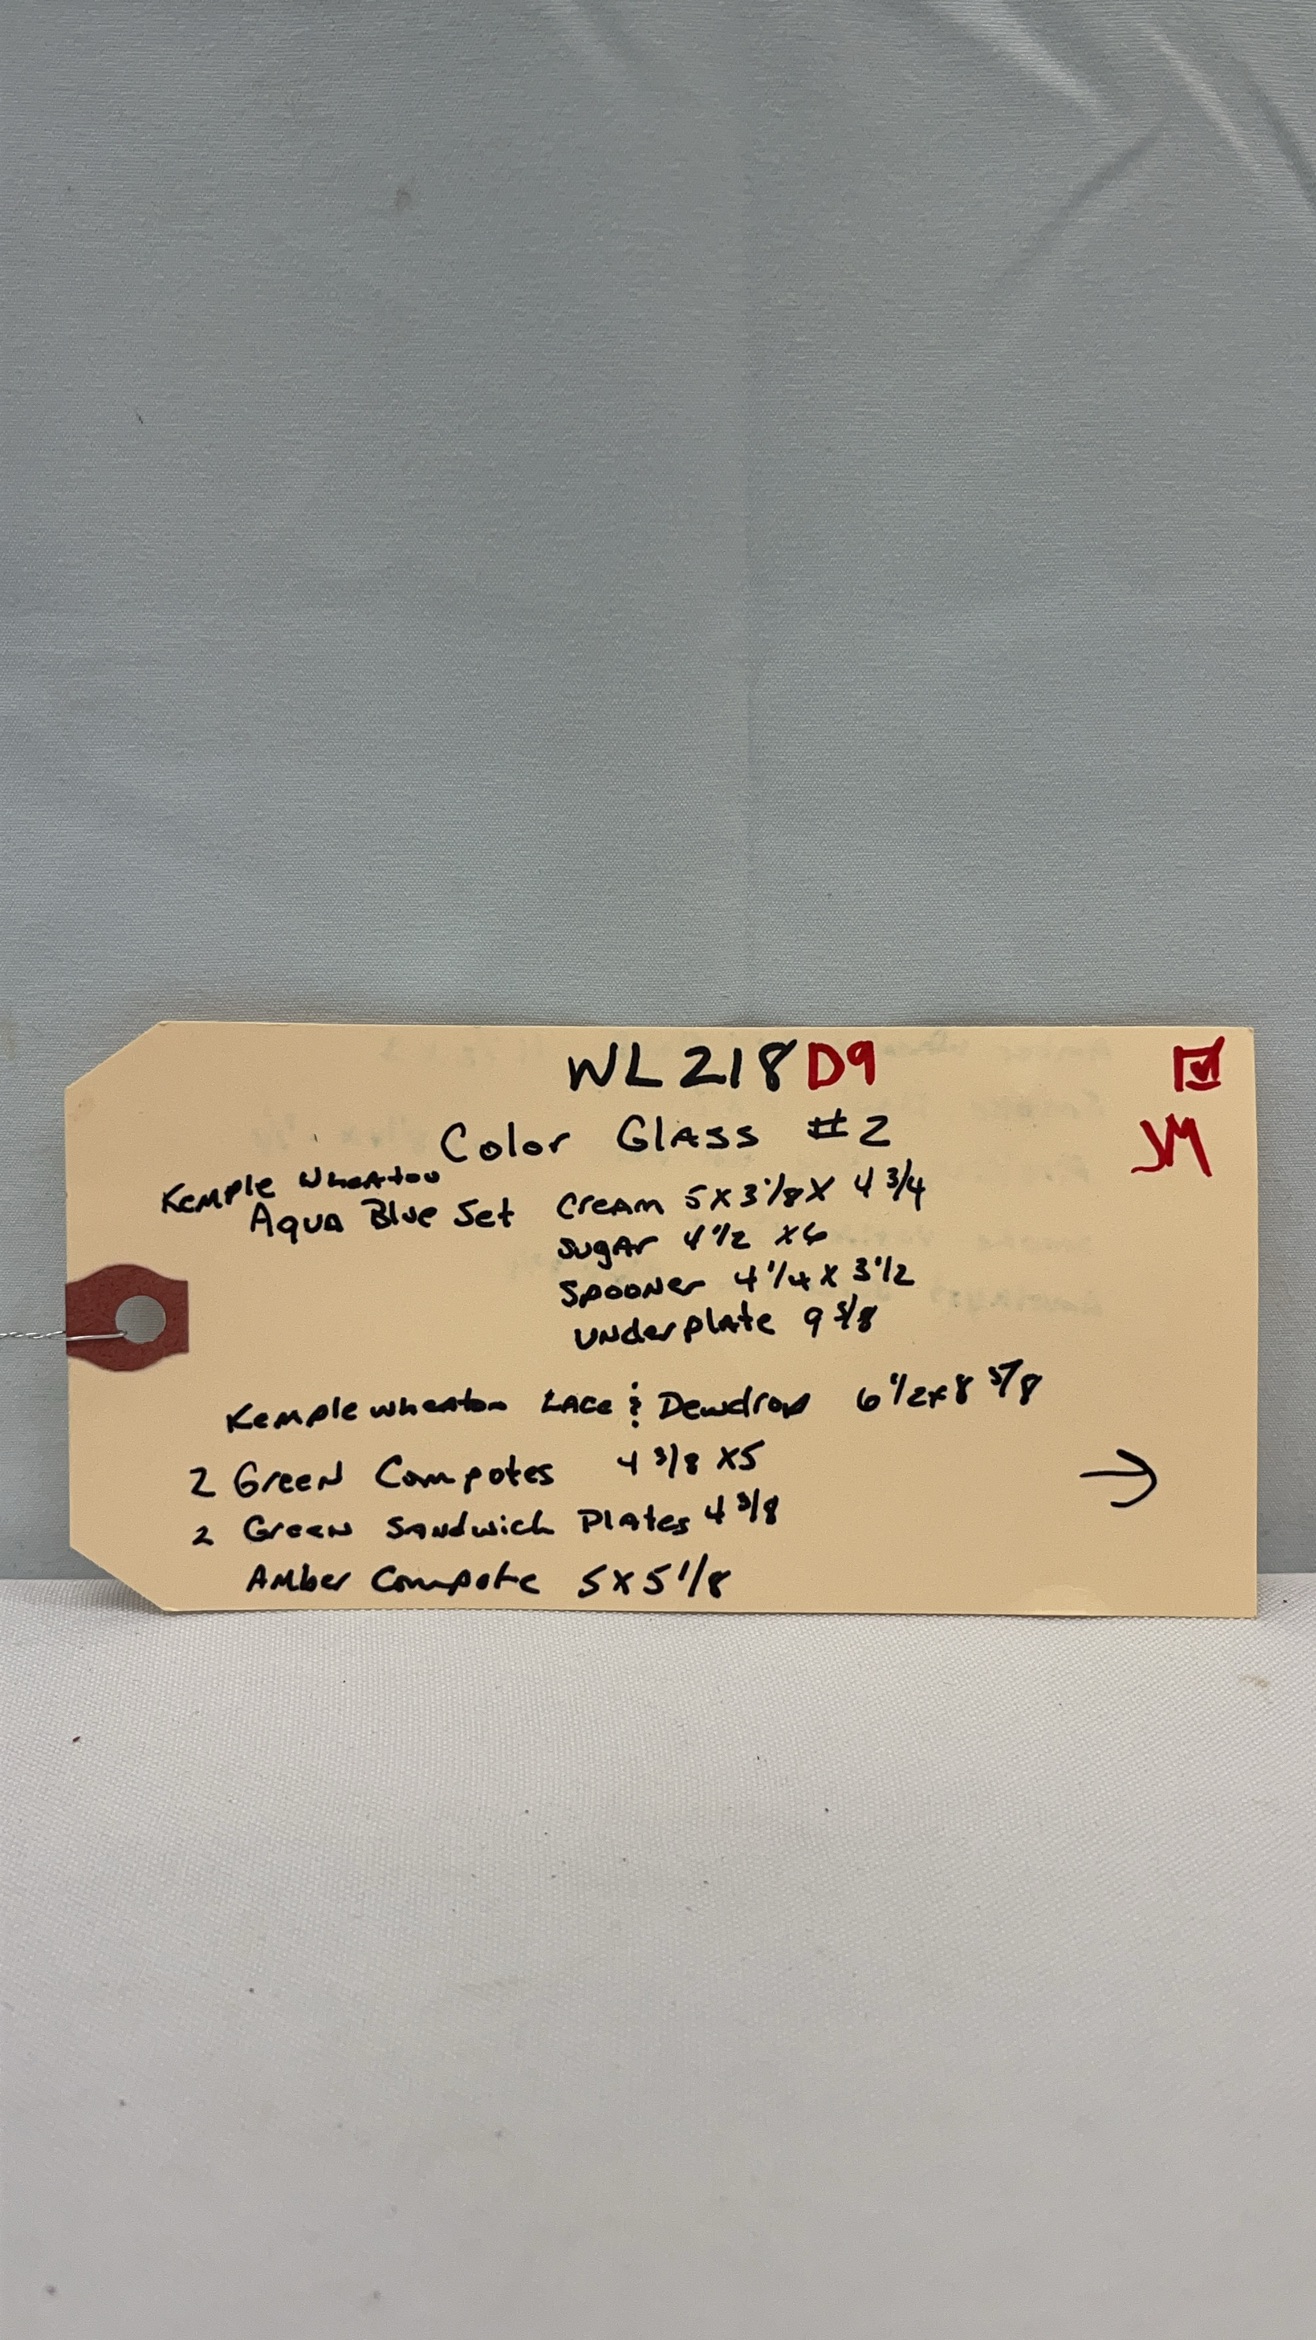 WL218 D9
JM
Color Glass #2
Kemple Wheaton
Aqua Blue Set Cream 5 x 3 1/8 x 4 3/4
Sugar 4 1/2 x 6
Spooner 4 1/4 x 3 1/2
Underplate 9 5/8
Kemple Wheaton Lace & Dewdrop 6 1/2 x 8 5/8
2 Green Compotes 4 3/8 x 5
→
2 Green Sandwich Plates 4 3/8
Amber Compote 5 x 5 1/8